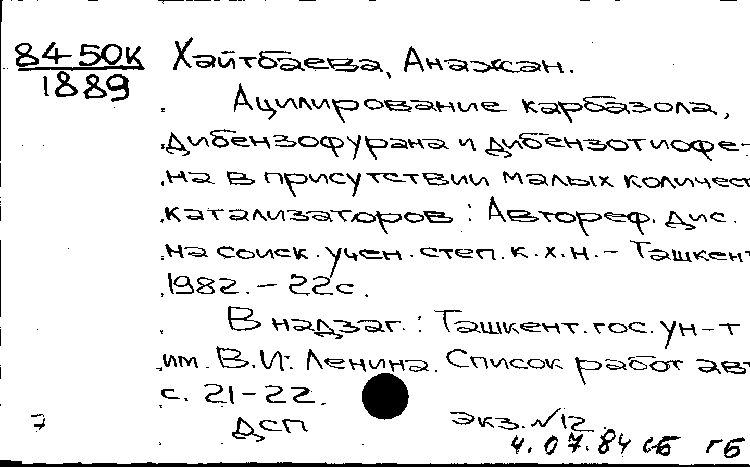 84-50К
1889
Хайтбаева, Анажан.
Ацилирование карбазола,
дибензофурана и дибензотиофе-
на в присутствии малых количест
катализаторов : Автореф. дис.
на соиск. учен. степ. к.х.н. - Ташкент
1982. - 22с.
В надзаг. : Ташкент. гос. ун-т
им. В.И. Ленина. Список работ авт
с. 21-22.
ДСП экз. №12
7
4.07.84 сб гб